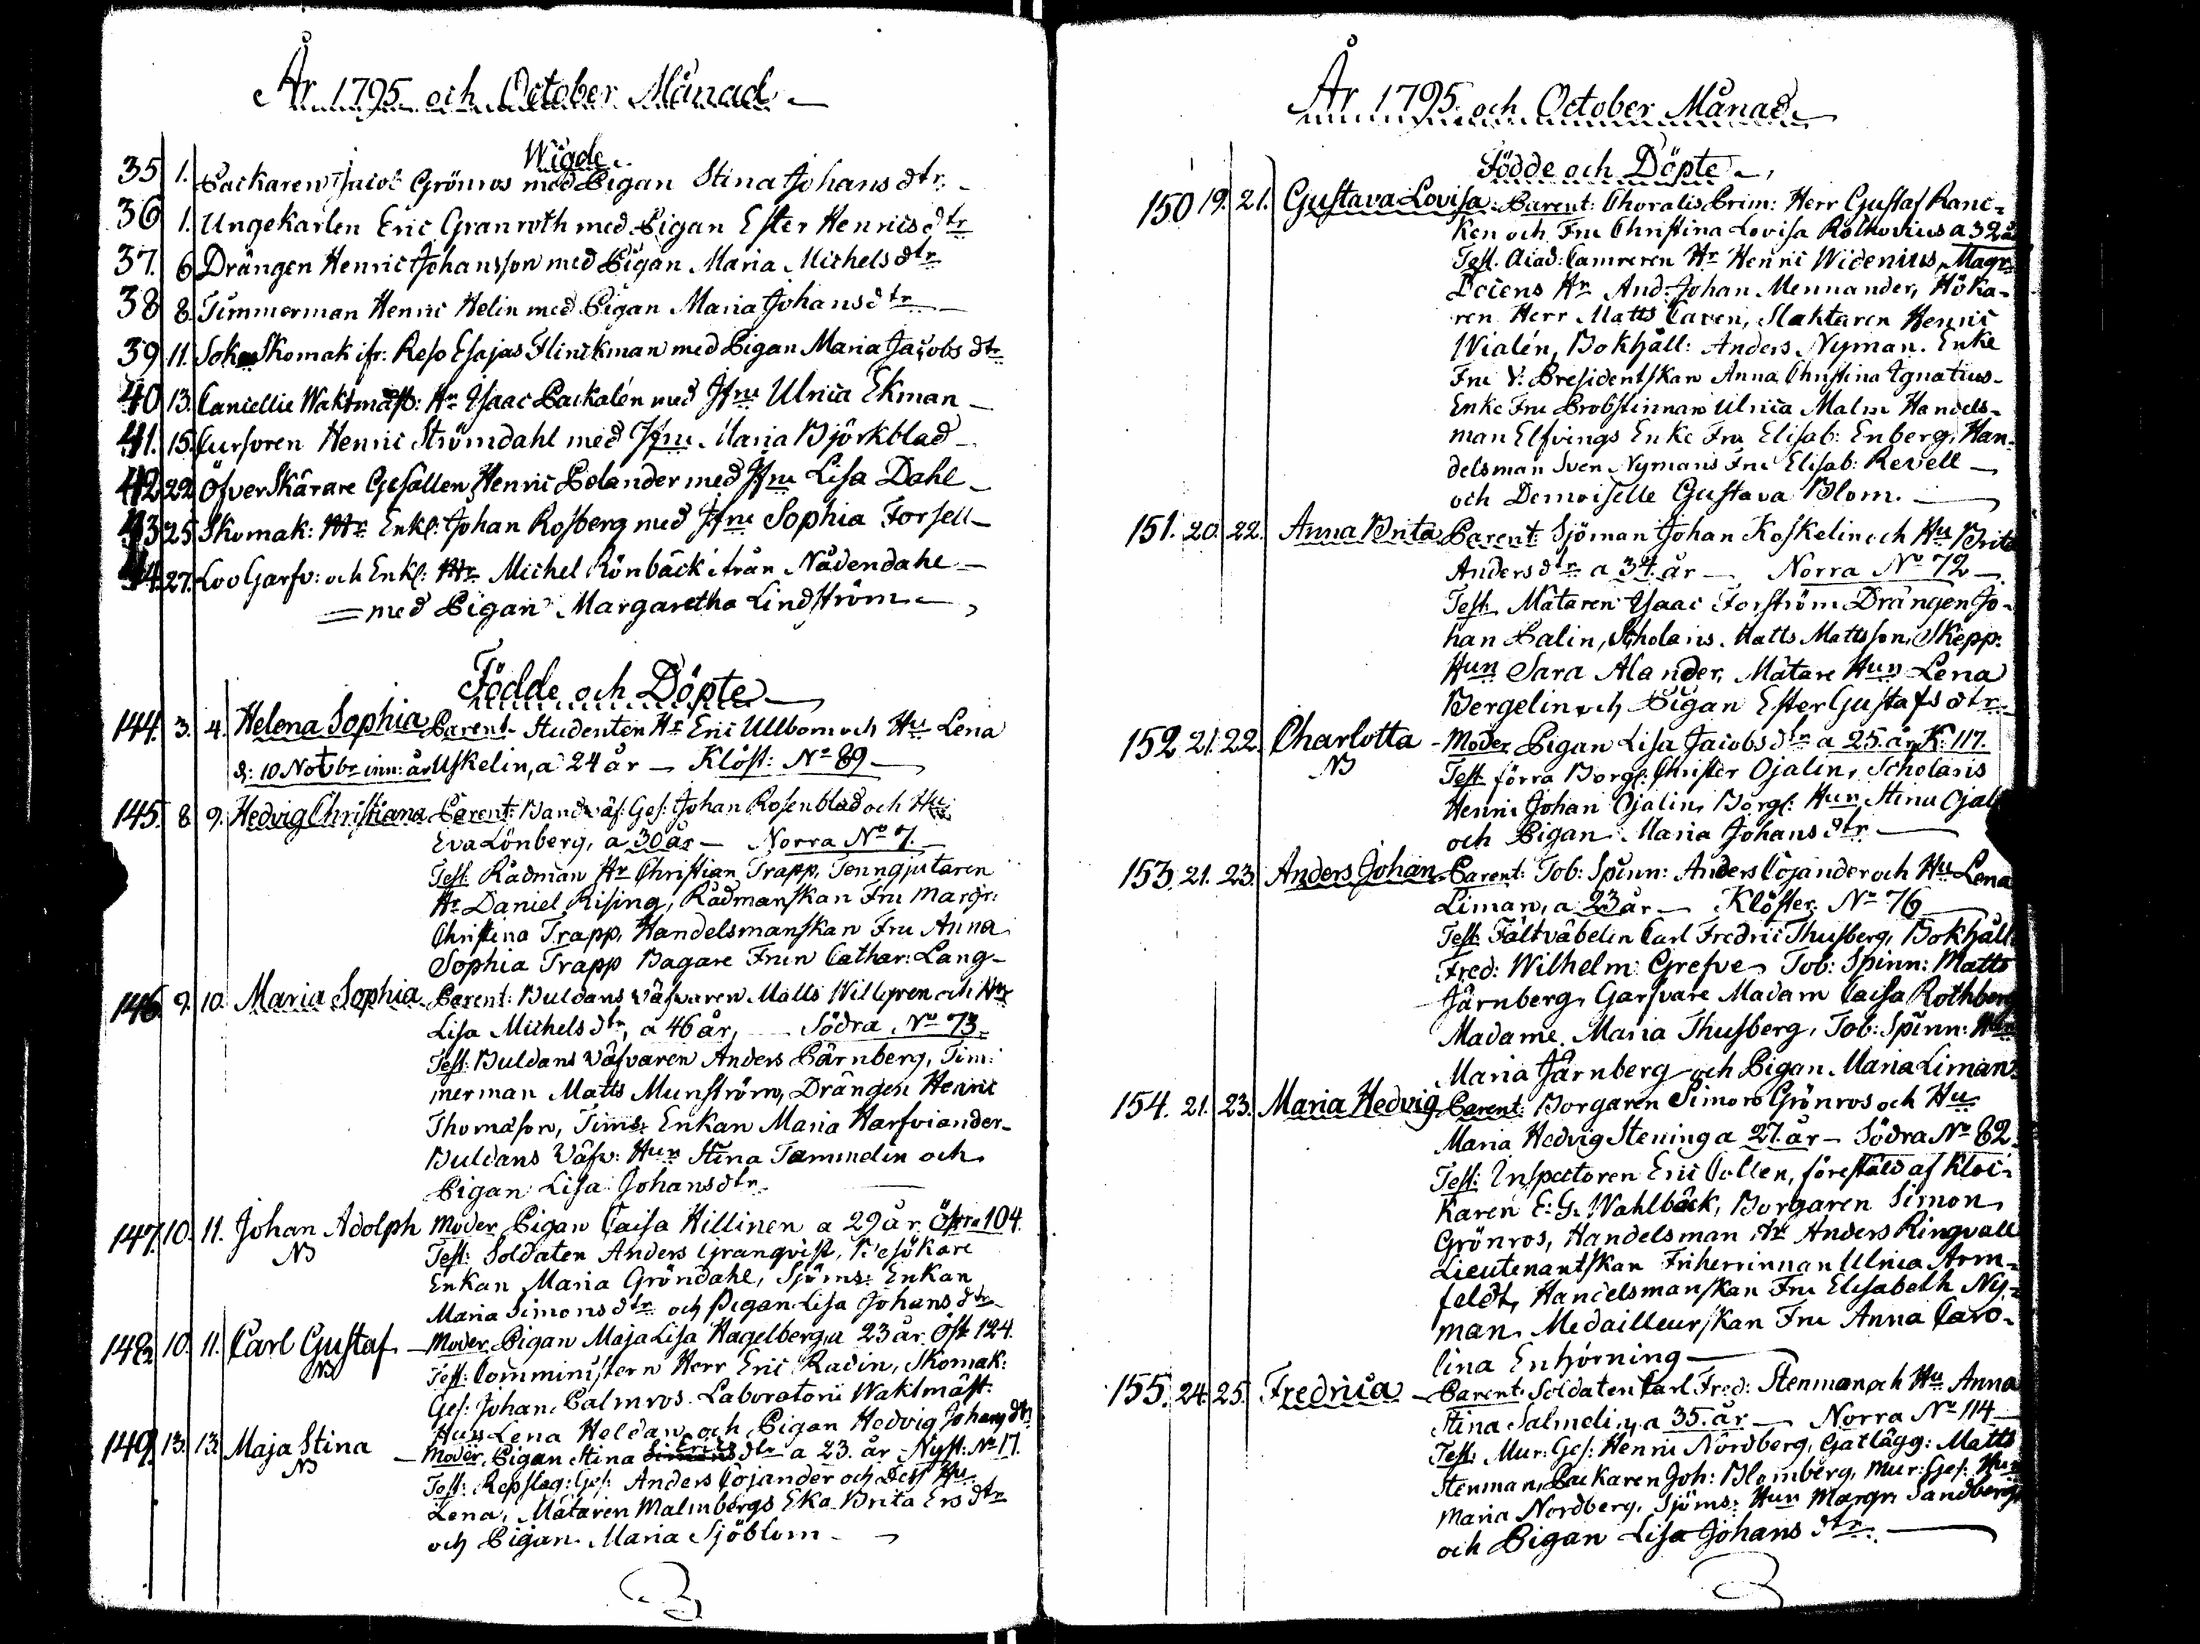 År 1795 och October Månad
Wigde
35 1. Packaren Jacob Grönros med Pigan Stina Johans dtr.
36 1. Ungekarlen Eric Granroth med Pigan Ester Henrics dtr
37. 6 Drängen Henric Johansson med Pigan Maria Michels dtr
38 8. Timmerman Henric Helin med Pigan Maria Johans dtr
39 11. Skomak ifr: Reso Esajas Flinckman med Pigan Maria Jacobs dtr
40 13. Cancellie Waktmäst: Hr Isaac Packalén med Jfru Ulrica Ekman
41. 15. Cursoren Henric Strömdahl med Jfru Maria Björkblad
42 22. Öfverskärare Gesällen Henric Polander med Jfru Lisa Dahl
43 25 Skomak: Mr Enkl: Johan Rosberg med Jfru Sophia Forsell
44. 27. Loo Garfv: och Enkl: Mr Michel Rönbäck ifrån Nådendahl
med Pigan Margaretha Lindström
Födde och Döpte
144. 3. 4. Helena Sophia Parent. Studenten Hr Eric Ullbom och Hu Lena
d: 10 Novbr inn: år Uskelin, a 24 år Klöst: No 89
145. 8 9. Hedvig Christiana Parent: Bandväf: Ges: Johan Rosenblad och Hu
Eva Lönberg, a 30 år Norra No 7.
Test: Rådman Hr Christian Trapp, Tenngjutaren
Hr Daniel Rising, Rådmanskan Fru Margr:
Christina Trapp, Handelsmanskan Fru Anna
Sophia Trapp Bagare Frun Cathar: Lang
146. 9. 10. Maria Sophia Parent: Buldans väfvaren Matts Willgren och Hu
Lisa Michels dtr, a 46 år, Södra No 73.
Test: Buldans väfvaren Anders Pärnberg, Tim:
merman Matts Munström, Drängen Henric
Thomasson, Tims: Enkan Maria Harfviander
Buldans Väfv: Hun Stina Tammelin och
Pigan Lisa Johansdtr.
147. 10. 11. Johan Adolph Moder Pigan Caisa Hillinen a 29 år, Östra 104.
NB Test: Soldaten Anders Granqvist, Besökare
Enkan Maria Gröndahl, Sjöms: Enkan
Maria Simons dtr och Pigan Lisa Johans dtr
148. 10. 11. Carl Gustaf Moder Pigan Maja Lisa Hagelberg, a 23 år. Öst: 124.
NB Test: Comministern Herr Eric Radin, Skomak:
Ges: Johan Palmros Laboratorii Waktmäst:
Hun Lena Heldan och Pigan Hedvig Johans dtr
149. 13. 13. Maja Stina Moder, Pigan Stina Erics dtr a 23. år Nyst: No 17.
NB Test: Repslag: Ges: Anders Cojander och dess Hu
Lena, Mätaren Malmbergs Eka Brita Ers dtr
och Pigan Maria Sjöblom
År 1795 och October Månad
Födde och Döpte
150 19. 21. Gustava Lovisa Parent: Choralis Prim: Herr Gustaf Ranc-
ken och Fru Christina Lovisa Rothovius a 32 år
Test. Acad: Camreren Hr Henric Widenius, Magr
Docens Hr And: Johan Mennander, Höka-
ren Herr Matts Caven, Slaktaren Henric
Wialén, Bokhåll: Anders Nyman. Enke
Fru V: Presidentskan Anna Christina Ignatius
Enke Fru Probstinnan Ulrica Malm Handels-
man Elfvings Enke Fru Elisab: Enberg, Han-
delsman Sven Nymans Fru Elisab: Revell
och Demoiselle Gustava Blom.
151. 20. 22. Anna Brita Parent: Sjöman Johan Koskelin och Hu Brita
Anders dtr a 34 år Norra No 72
Test. Mätaren Isaac Forström Drängen Jo-
han Palin, Scholaris Matts Mattsson, Skepp:
Hun Sara Alander, Mätare Hun Lena
Bergelin och Pigan Ester Gustafs dtr
152 21. 22. Charlotta Moder Pigan Lisa Jacobs dtr a 25. år K: 117.
NB Test. förra Borgl: Christer Ojalin, Scholaris
Henric Johan Ojalin, Borgl: Hun Stina Ojal
och Pigan Maria Johans dtr
153. 21. 23. Anders Johan Parent: Tob: Spinn: Anders Cojander och Hu Lena
Liman, a 23 år Klöster No 76
Test: Fältväbeln Carl Fredric Thusberg, Bokhåll
Fred: Wilhelm Grefve, Tob: Spinn: Matts
Järnberg, Garfvare Madam Caisa Rothberg
Madame Maria Thusberg, Tob: Spinn: Hun
Maria Järnberg och Pigan Maria Liman
154. 21. 23. Maria Hedvig Parent: Borgaren Simon Grönros och Hu
Maria Hedvig Stening a 27. år Södra No 82.
Test: Inspectoren Eric Collen, föreställd af Kloc-
karen E: G: Wahlbäck, Borgaren Simon
Grönros, Handelsman Hr Anders Ringvall
Lieutenantskan Friherrinnan Ulrica Arm-
feldt, Handelsmanskan Fru Elisabeth Ny-
man Medailleurskan Fru Anna Caro-
lina Enhörning
155. 24. 25. Fredrica Parent. Soldaten Carl Fred: Stenman och Hu Anna
Stina Salmelin, a 35. år Norra No 114
Test: Mur: Ges: Henric Nordberg, Gatlägg: Matts
Stenman, Packaren Joh: Blomberg, Mur: Ges: Hun
Maria Nordberg, Sjöms: Hun Margr: Sandberg
och Pigan Lisa Johans dtr.